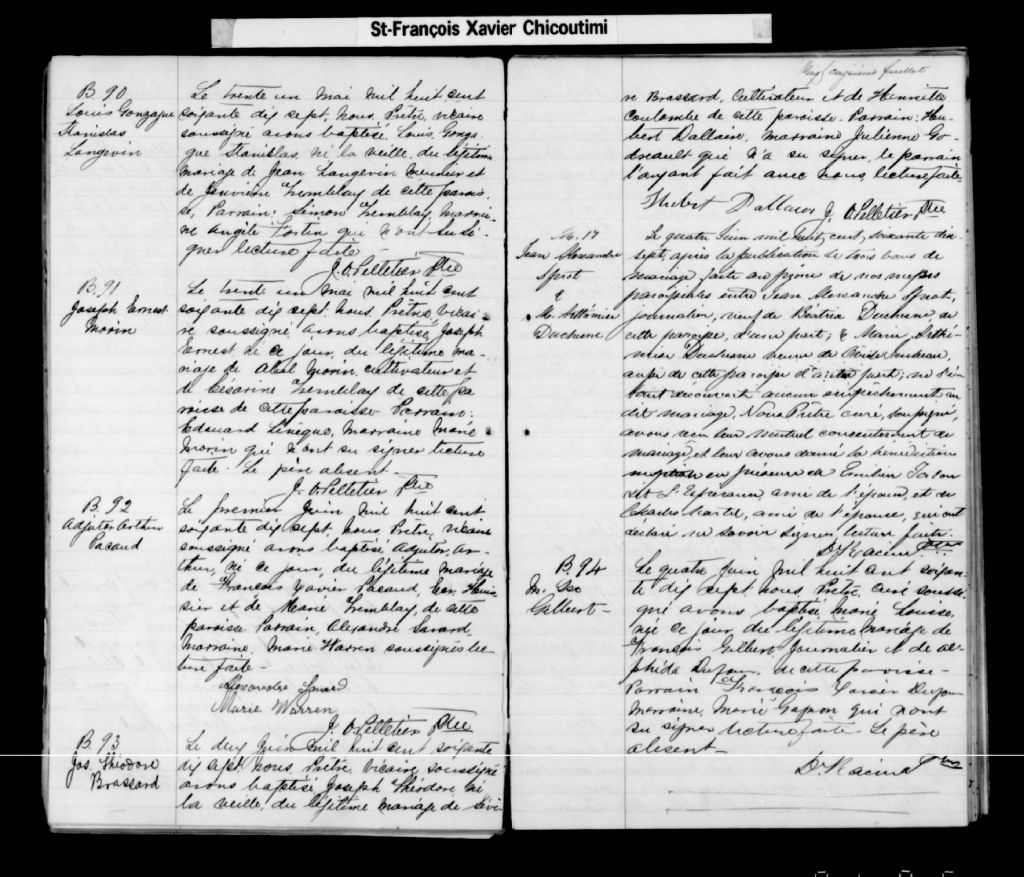 St-François Xavier Chicoutimi
B. 90
Louis Gonzague
Stanislas
Langevin
Le trente un Mai Mil huit cent
soixante dix sept, nous, Prêtre, vicaire
soussigné avons baptisé Louis Gonza
gue Stanislas, né la veille, du légitime
mariage de Jean Langevin meunier et
de Jenvieve Tremblay de cette parois
se, Parrain: Simon Tremblay, Marrai
ne Angèle Fortin qui n'ont su si-
gner lecture faite
J. O. Pelletier Ptre
B. 91
Joseph Ernest
Morin
Le trente un Mai Mil huit cent
soixante dix sept, nous, Prêtre, vicai
re soussigné, avons baptisé Joseph
Ernest, né ce jour, du légitime ma-
riage de Abel Morin, cultivateur et
de Césarine Tremblay de cette pa
roisse de cette paroisse Parrain:
Edouard Lévêque, Marraine Marie
Morin qui n'ont su signer lecture
faite. Le père absent -
J. O. Pelletier Ptre
B. 92
Adjutor Arthur
Pacaud
Le premier Juin Mil huit cent
soixante dix sept, nous, Prêtre, vicaire
soussigné avons baptisé Adjutor, Ar-
thur, né ce jour, du légitime mariage
de François Xavier Pacaud, Huis
sier et de Marie Tremblay, de cette
paroisse Parrain, Alexandre Savard,
Marraine, Marie Warren soussignés lec
ture faite -
Alexandre Savard
Marie Warren
J. O. Pelletier Ptre
B. 93
Jos. Théodore
Brassard
Le deux Juin Mil huit cent soixante
dix sept, nous, Prêtre, Vicaire, soussigné
avons baptisé Joseph Théodore, né
la veille, du légitime Mariage de Sévè
feuillet
re Brassard, Cultivateur et de Henriette
Coulombe de cette paroisse. Parrain: Hu-
bert Dallaire, Marraine Julienne Go-
dreault qui n'a su signer, le parrain
l'ayant fait avec nous, lecture faite
Hubert Dallaire J. O. Pelletier Ptre
M. 17
Jean Alexandre
&
M. Arthémise
Duchesne
Le quatre Juin mil huit cent, soixante dix-
sept, après la publication de trois bans de
mariage faite au prône de nos messes
paroissiales entre Jean Alexandre
journalier, veuf de Béatrice Duchesne, de
cette paroisse, d'une part; & Marie Arthé-
mise Duchesne veuve de
aussi de cette paroisse d'autre part; ne s'é-
tant découvert aucun empêchement au
dit mariage, Nous Prêtre curé, soussigné,
avons reçu leur mutuel consentement de
mariage, et leur avons donné la bénédiction
nuptiale en présence de Emilien
dit L'Espérance ami de l'époux, et de
Charles Martel, ami de l'épouse, qui ont
déclaré ne savoir signer, lecture faite.
D. Racine Ptre
B. 94
M. Geo
Gilbert -
Le quatre Juin Mil huit cent soixan
te dix sept, nous, Prêtre, curé soussi
gné avons baptisé Marie,
née ce jour, du légitime Mariage de
François Gilbert, Journalier et de Al-
phéda Dufour, de cette paroisse -
Parrain François Xavier Dufour
Marraine, Marie Gagnon qui n'ont
su signer lecture faite - Le père
absent -
D. Racine Ptre